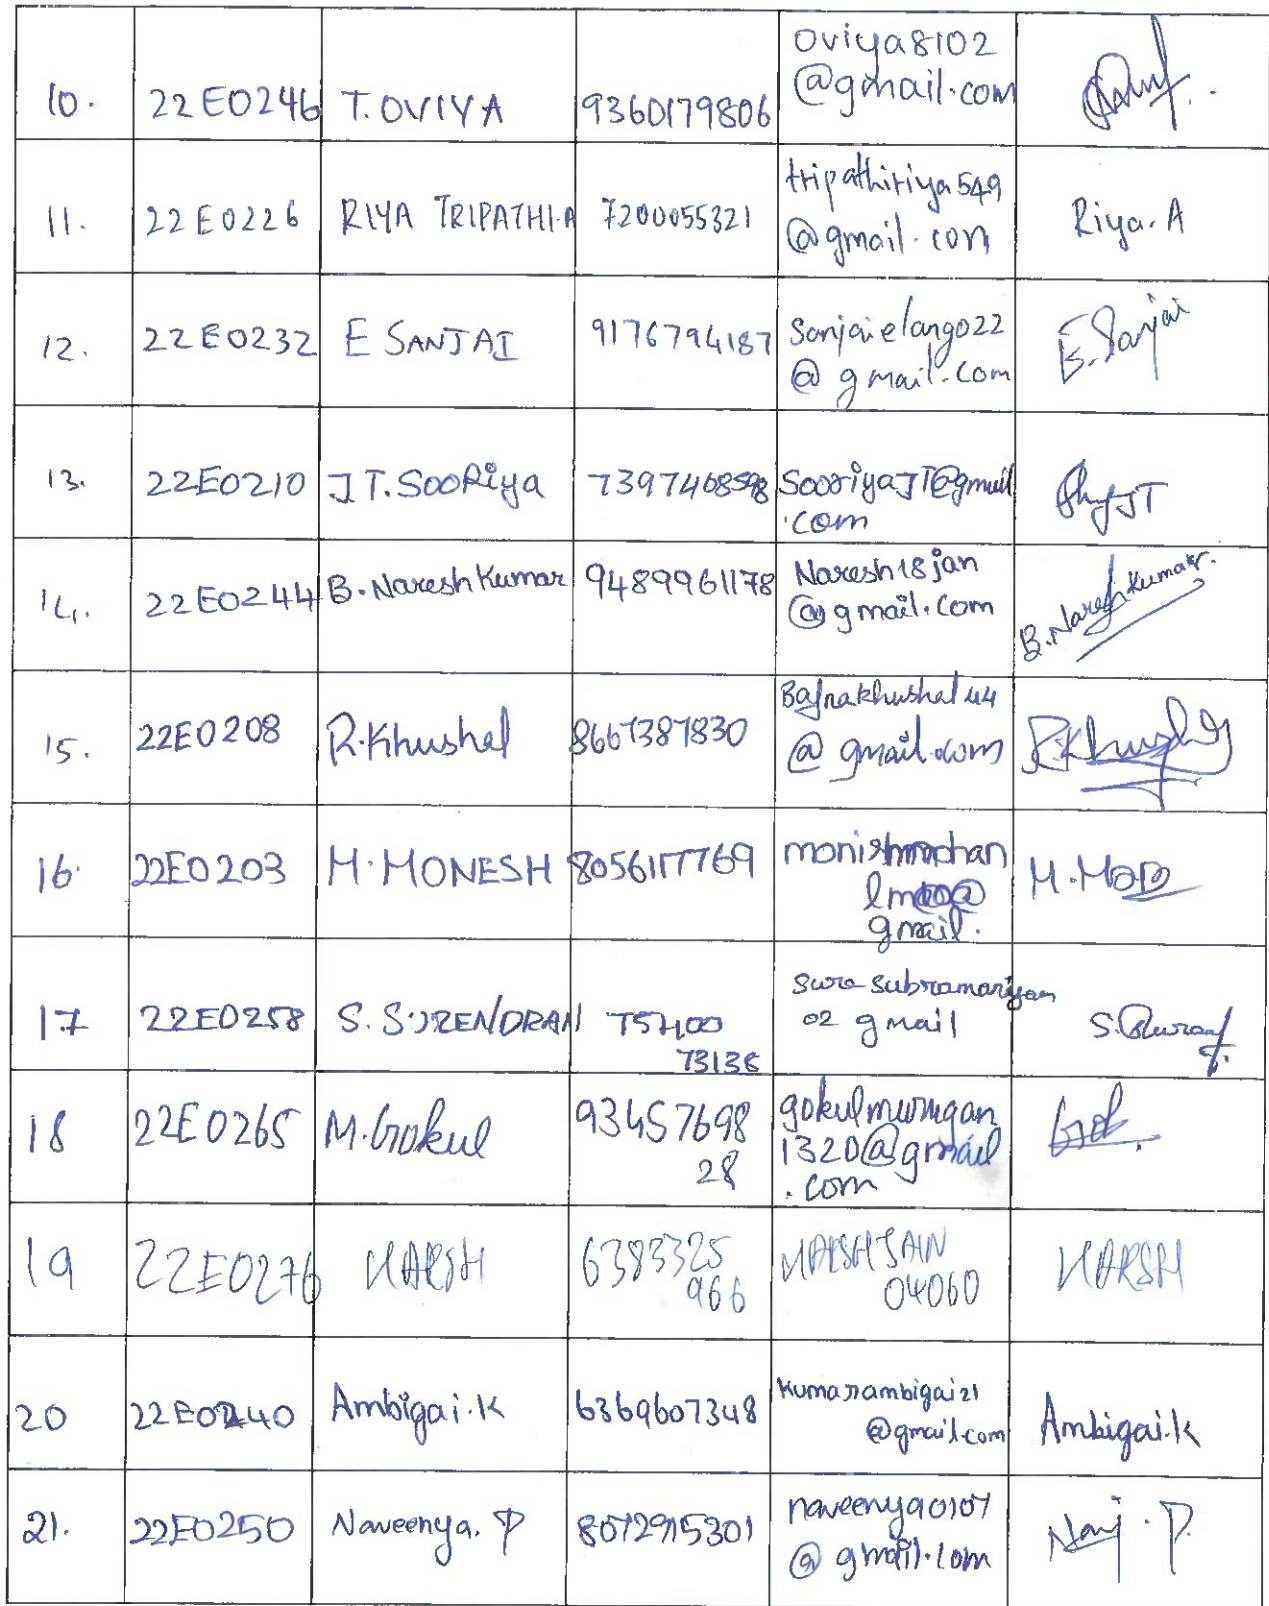 10. 22E0246 T. OVIYA 9360179806 oviya8102
@gmail.com
11. 22E0226 RIYA TRIPATHI.A 7200055321 tripathiriya549
@gmail.com Riya.A
12. 22E0232 E SANJAI 9176794187 Sanjaielango22
@gmail.com E.Sanjai
13. 22E0210 J T. SOORiya 7397468598 SooriyaJT@gmail
.com
14. 22E0244 B. Naresh Kumar 9489961178 Naresh18jan
@gmail.com B.Naresh Kumar.
15. 22E0208 R.Khushal 8667387830 Bafnakhushal44
@gmail.com R.Khushal
16. 22E0203 M. MONESH 8056117769
gmail.
17 22E0258 S. SURENDRAN 75400
73138 Sura subramaniyan
02 gmail
18 22E0265 M.Gokul 93457698
28 gokulmurugan
1320@gmail
.com
19 22E0276 HARSH 6383325
966 HARSHJAIN
04060 HARSH
20 22E0240 Ambigai.K 6369607348 Kumarambigai21
@gmail.com Ambigai.K
21. 22E0250 Naveenya. P 8072915301 naveenya0107
@gmail.com